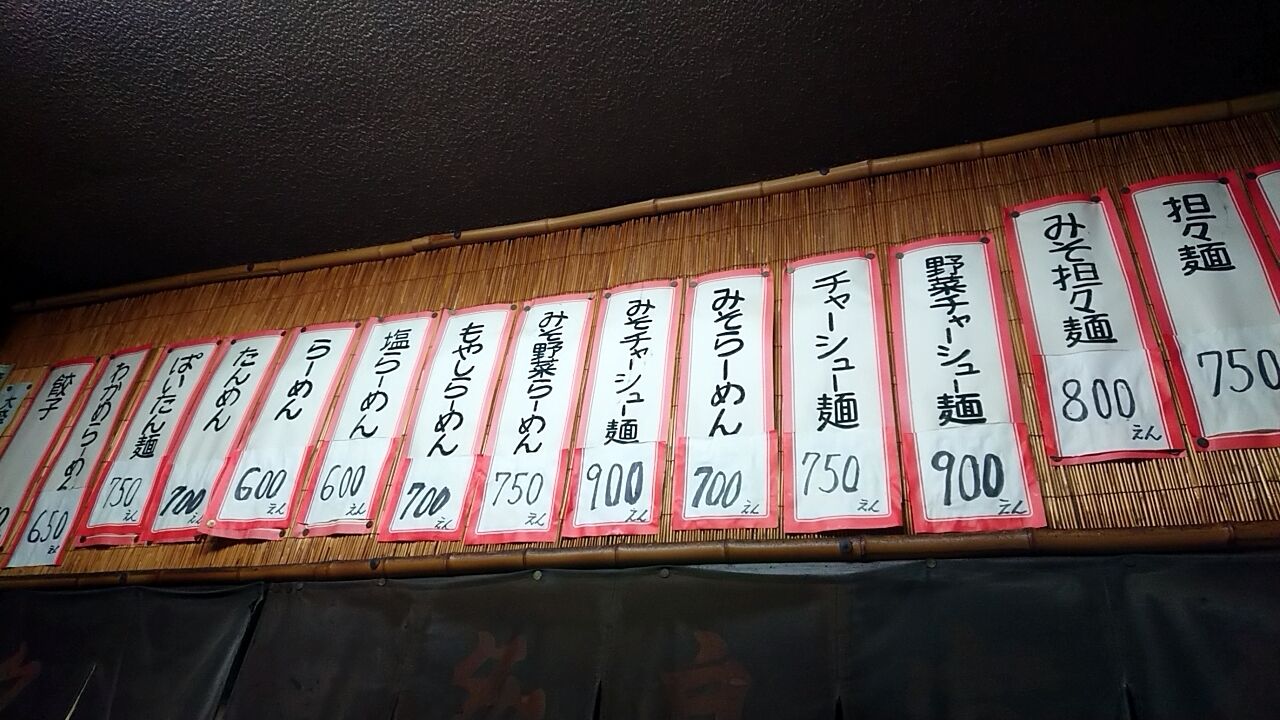 担々麺
750
みそ担々麺
800えん
野菜チャーシュー麺
900えん
チャーシュー麺
750えん
みそらーめん
700えん
みそチャーシュー麺
900えん
みそ野菜らーめん
750えん
もやしらーめん
700えん
塩らーめん
600えん
らーめん
600えん
たんめん
700えん
ぱーいたん麺
750えん
わかめらーめん
650えん
餃子